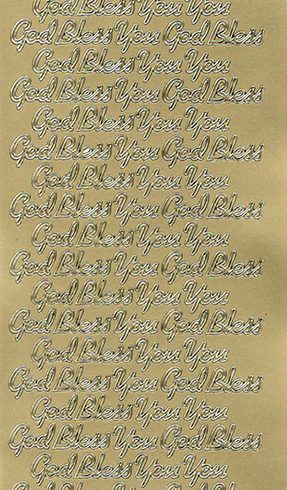 God Bless You You
God Bless You God Bless
God Bless You You
God Bless You God Bless
God Bless You You
God Bless You God Bless
God Bless You You
God Bless You God Bless
God Bless You You
God Bless You God Bless
God Bless You You
God Bless You God Bless
God Bless You You
God Bless You God Bless
God Bless You You
God Bless You God Bless
God Bless You You
God Bless You God Bless